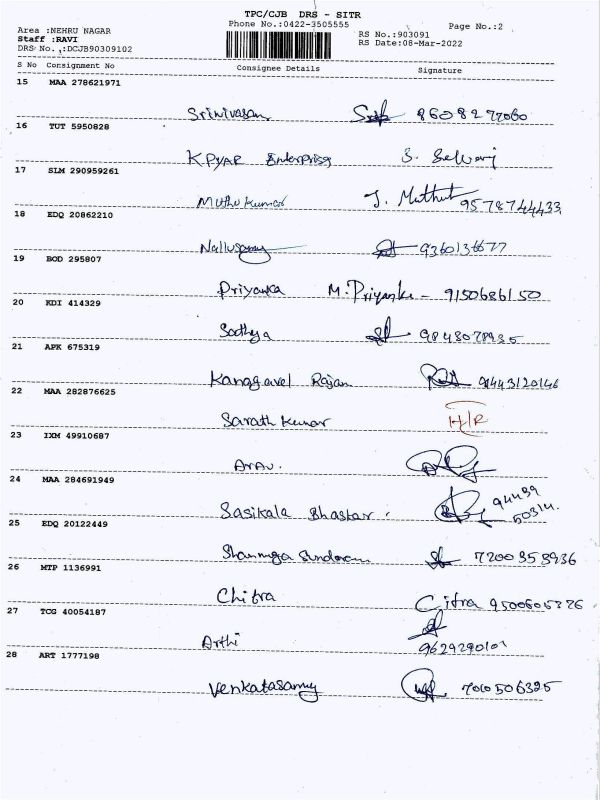 TPC/CJB DRS - SITR
Phone No.:0422-3505555
Page No.:2
Area :NEHRU NAGAR
Staff :RAVI
DRS No. :DCJB90309102
RS No.:903091
RS Date:08-Mar-2022
S No Consignment No Consignee Details Signature
15 MAA 278621971
Srinivasan
16 TUT 5950828
KPYAR Enterprises S. Selvaraj
17 SLM 290959261
Muthu Kumar J. Muthuk 9578744433
18 EDQ 20862210
Nallusamy
19 BOD 295807
Priyanka M. Priyanka - 9150686150
20 KDI 414329
Sathya 9843078935
21 APK 675319
Kanagavel Rajan 98443120146
22 MAA 282876625
Sarath Kumar H/R
23 IXM 49910687
Arav.
24 MAA 284691949
Sasikala Bhaskar. 94439 50314.
25 EDQ 20122449
Shanmuga Sundaram 7200353936
26 MTP 1136991
Chitra Citra 9500605326
27 TCG 40054187
Arthi
9629290101
28 ART 1777198
Venkatasamy 7010506325